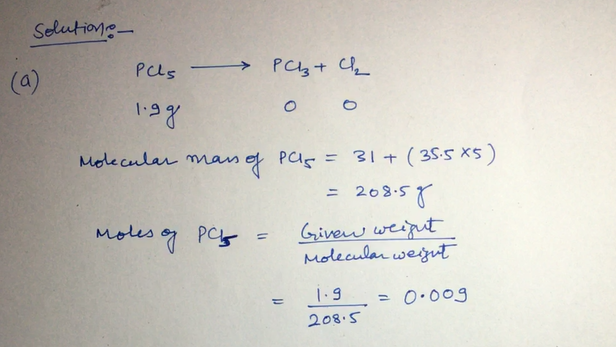 Solution:-
(a)
PCl5 ⟶ PCl3 + Cl2
1.9g 0 0
Molecular mass of PCl5 = 31 + (35.5 × 5)
= 208.5 g
Moles of PCl5 = Given weight / Molecular weight
= 1.9 / 208.5 = 0.009